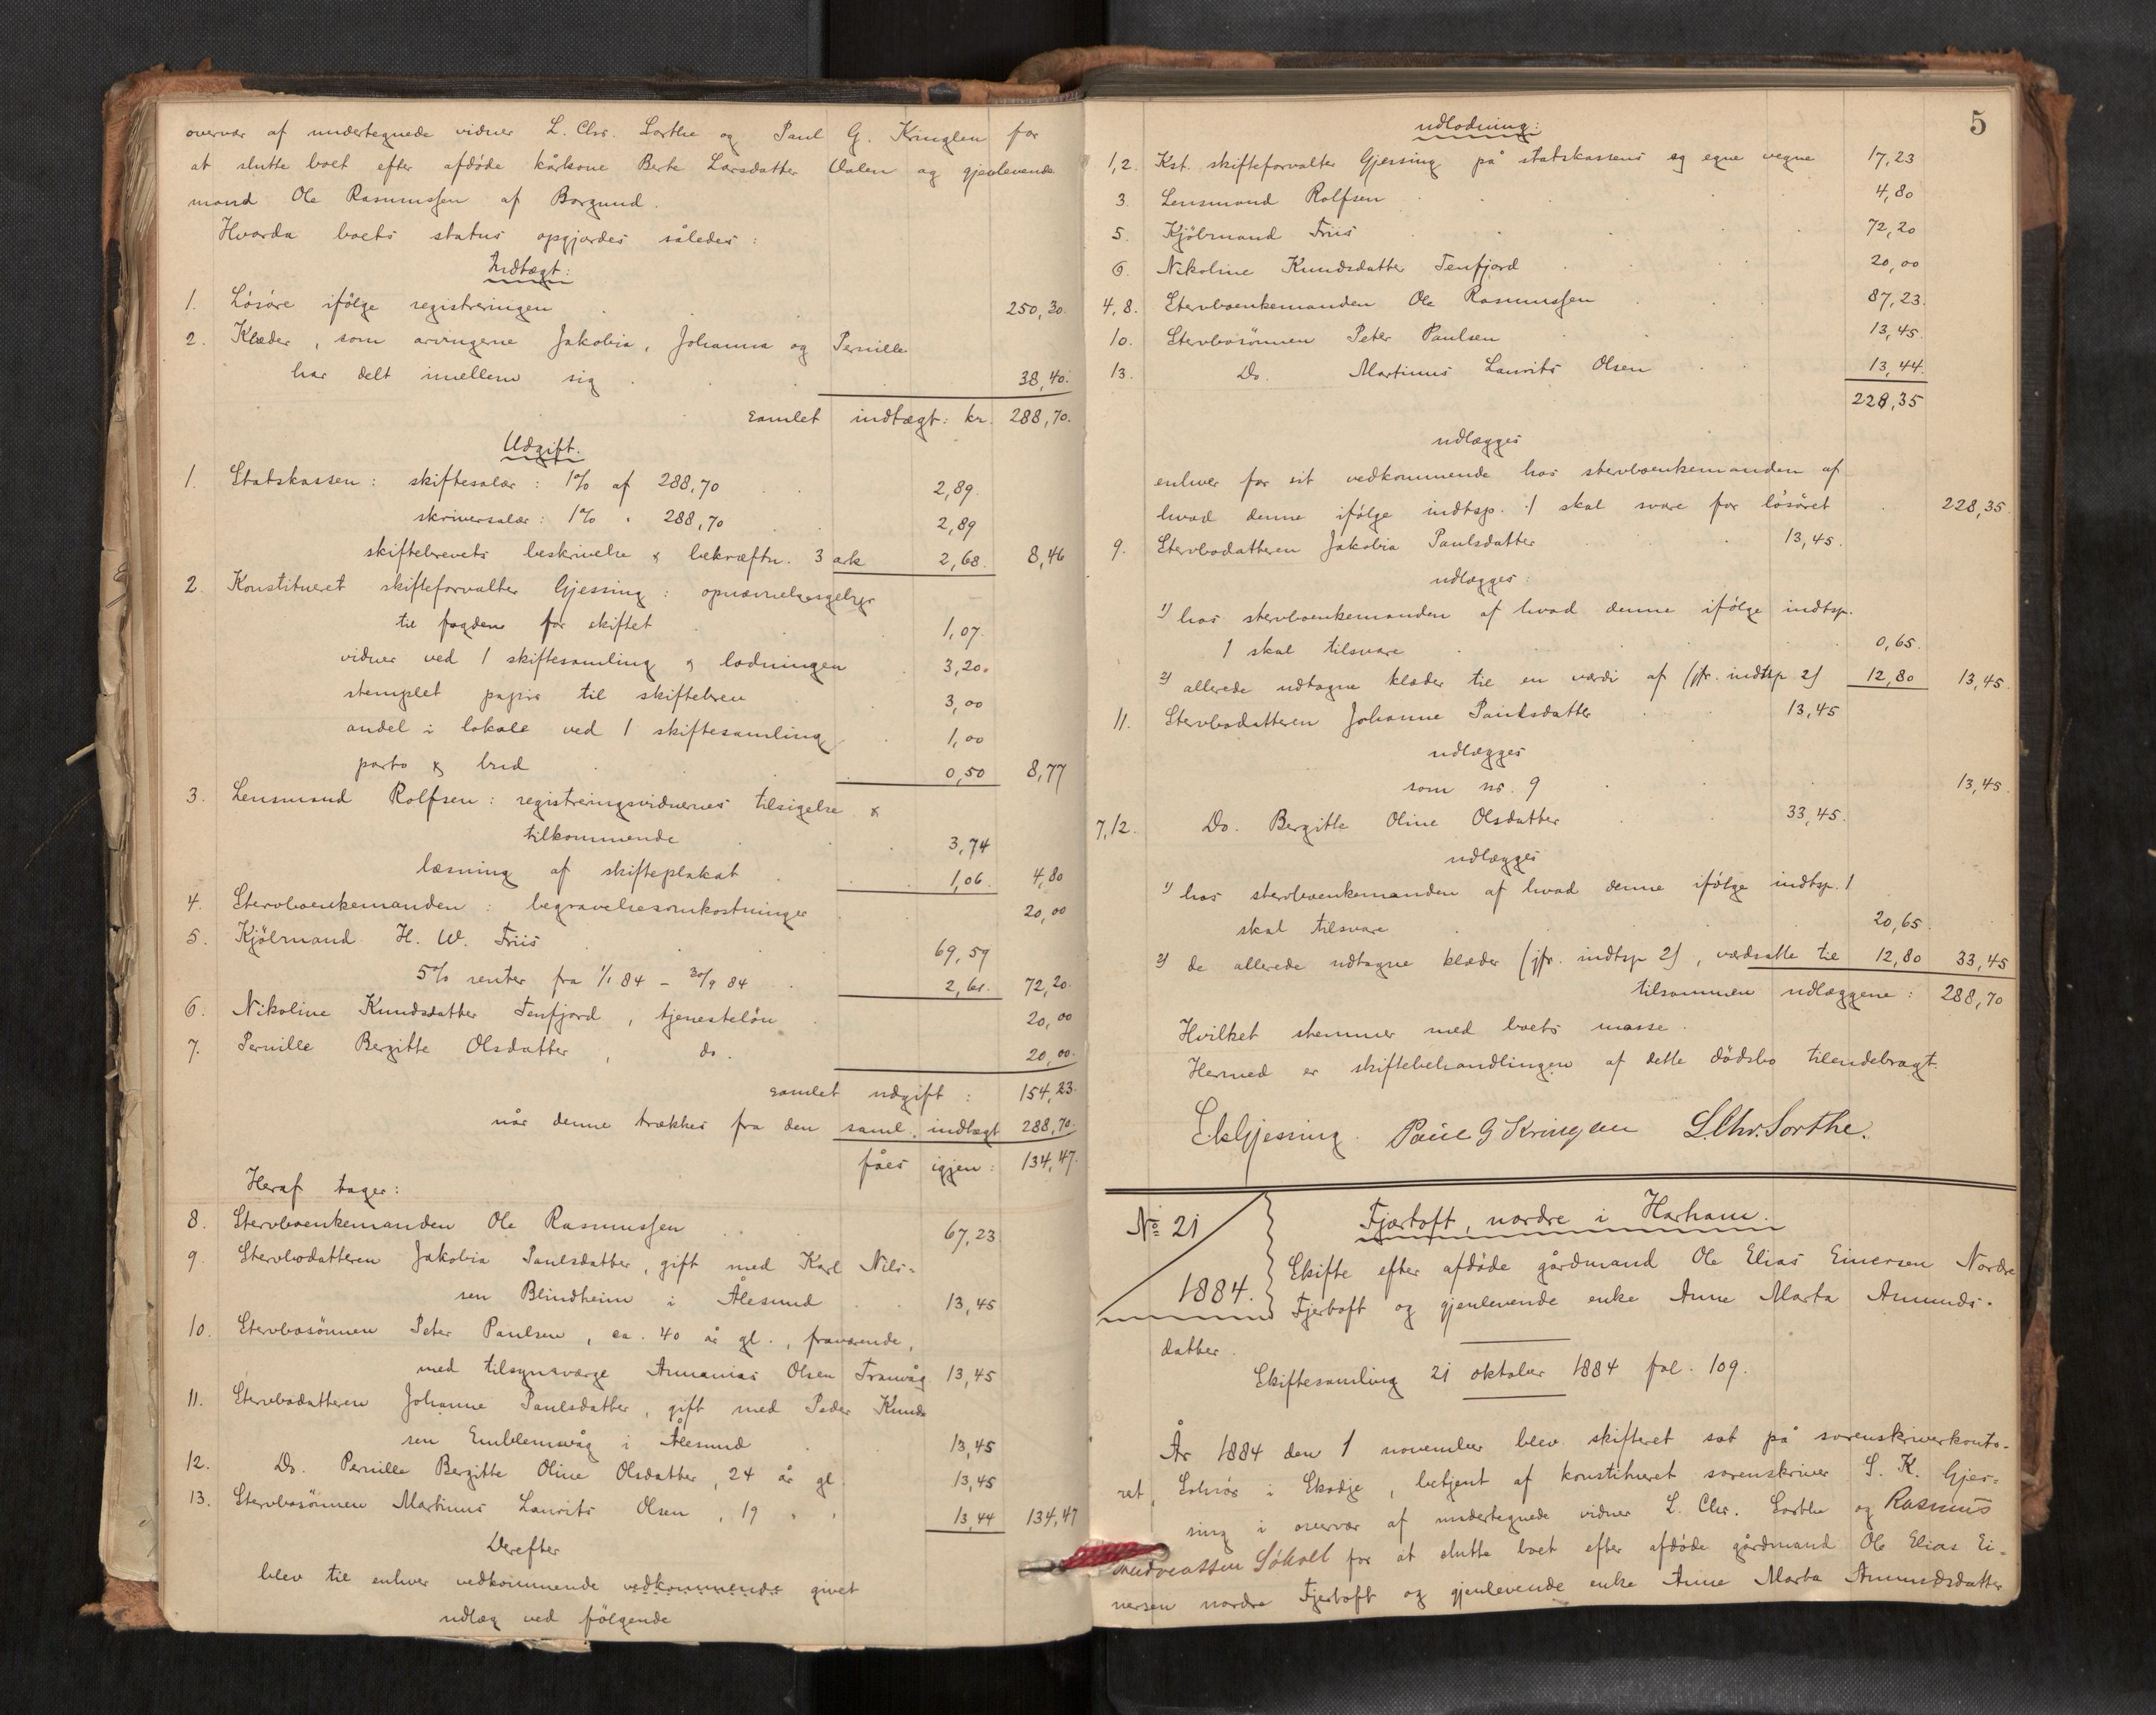 overvær af undertegnede vidner L. Chr. Sorthe og Paul G. Kringlen for
at slutte boet efter afdøde kårkone Berte Larsdatter Valen og gjenlevende
mand Ole Rasmussen af Borgund.
Hvorda boets status opgjordes således:
Indtægt:
1. Løsøre ifølge registreringen 250,30.
2. Klæder, som arvingerne Jakobia, Johanna og Pernille
har delt imellem sig 38,40.
samlet indtægt: kr. 288,70.
Udgift.
1. Statskassen: skiftesalær: 1% af 288,70 2,89.
skriversalær: 1% " 288,70 2,89
skiftebrevets beskrivelse & bekræftn. 3 ark 2,68. 8,46
2. Konstitueret skifteforvalter Gjessing: opnævnelsesgebyr
til fogden for skiftet 1,07.
vidner ved 1 skiftesamling & lodningen 3,20.
stemplet papir til skiftebrev 3,00
andel i lokale ved 1 skiftesamling 1,00
porto & bud 0,50 8,77
3. Lensmand Rolfsen: registreringsvidnernes tilsigelse &
tilkommende 3,74
læsning af skifteplakat 1,06. 4,80
4. Stervboenkemanden: begravelsesomkostninger 20,00
5. Kjøbmand H. W. Friis 69,59
5% renter fra 1/1 84 – 30/9 84 2,61. 72,20.
6. Nikoline Knudsdatter Tenfjord, tjenesteløn 20,00
7. Pernille Bergitte Olsdatter, do. 20,00.
samlet udgift: 154,23.
når denne trækkes fra den saml. indtægt 288,70.
fåes igjen: 134,47.
Heraf tager:
8. Stervboenkemanden Ole Rasmussen 67,23
9. Stervbodatteren Jakobia Paulsdatter, gift med Karl Nils=
sen Blindheim i Ålesund 13,45
10. Stervbosønnen Peter Paulsen, ca. 40 år gl., fraværende,
med tilsynsværge Annanias Olsen Tranvåg 13,45
11. Stervbodatteren Johanne Paulsdatter, gift med Peder Knud=
sen Emblemsvåg i Ålesund 13,45
12. Do. Pernille Bergitte Oline Olsdatter, 24 år gl. 13,45
13. Stervbosønnen Martinus Laurits Olsen, 19 " " 13,44 134,47
Derefter
blev til enhver vedkommende vedkommende givet
udlæg ved følgende
5
udlodning:
1,2. Kst. skifteforvalter Gjessing på statskassens og egne vegne 17,23
3. Lensmand Rolfsen 4,80
5. Kjøbmand Friis 72,20
6. Nikoline Knudsdatter Tenfjord 20,00
4,8. Stervboenkemanden Ole Rasmussen 87,23.
10. Stervbosønnen Peter Paulsen 13,45.
13. Do. Martinus Laurits Olsen 13,44.
228,35
udlægges
enhver for sit vedkommende hos stervboenkemanden af
hvad denne ifølge indtsp. 1 skal svare for løsøret 228,35.
9. Stervbodatteren Jakobia Paulsdatter 13,45.
udlægges:
1) hos stervboenkemanden af hvad denne ifølge indtsp.
1 skal tilsvare 0,65.
2) allerede udtagne klæder til en værdi af (jfr. indtsp 2) 12,80 13,45.
11. Stervbodatteren Johanne Paulsdatter 13,45
udlægges
som nr. 9 13,45.
7,12. Do. Bergitte Oline Olsdatter 33,45.
udlægges
1) hos stervboenkemanden af hvad denne ifølge indtsp. 1
skal tilsvare 20,65.
2) de allerede udtagne klæder (jfr. indtsp 2), værdsatte til 12,80 33,45
tilsammen udlæggene: 288,70
Hvilket stemmer med boets masse.
Hermed er skiftebehandlingen af dette dødsbo tilendebragt.
Gjessing. Paul G Kringlen L. Chr. Sorthe.
No 21
1884.
Fjærtoft, nordre i Harham.
Skifte efter afdøde gårdmand Ole Elias Einersen Nordre
Fjertoft og gjenlevende enke Anne Marta Amunds-
datter.
Skiftesamling 21 oktober 1884 fol. 109.
År 1884 den 1 november blev skifteret sat på sorenskriverkonto-
ret, Solnør i Skodje, betjent af konstitueret sorenskriver S. K. Gjes=
sing i overvær af undertegnede vidner L. Chr. Sorthe og Rasmus
Søholt for at slutte boet efter afdøde gårdmand Ole Elias Ei=
nersen nordre Fjertoft og gjenlevende enke Anne Marta Amundsdatter